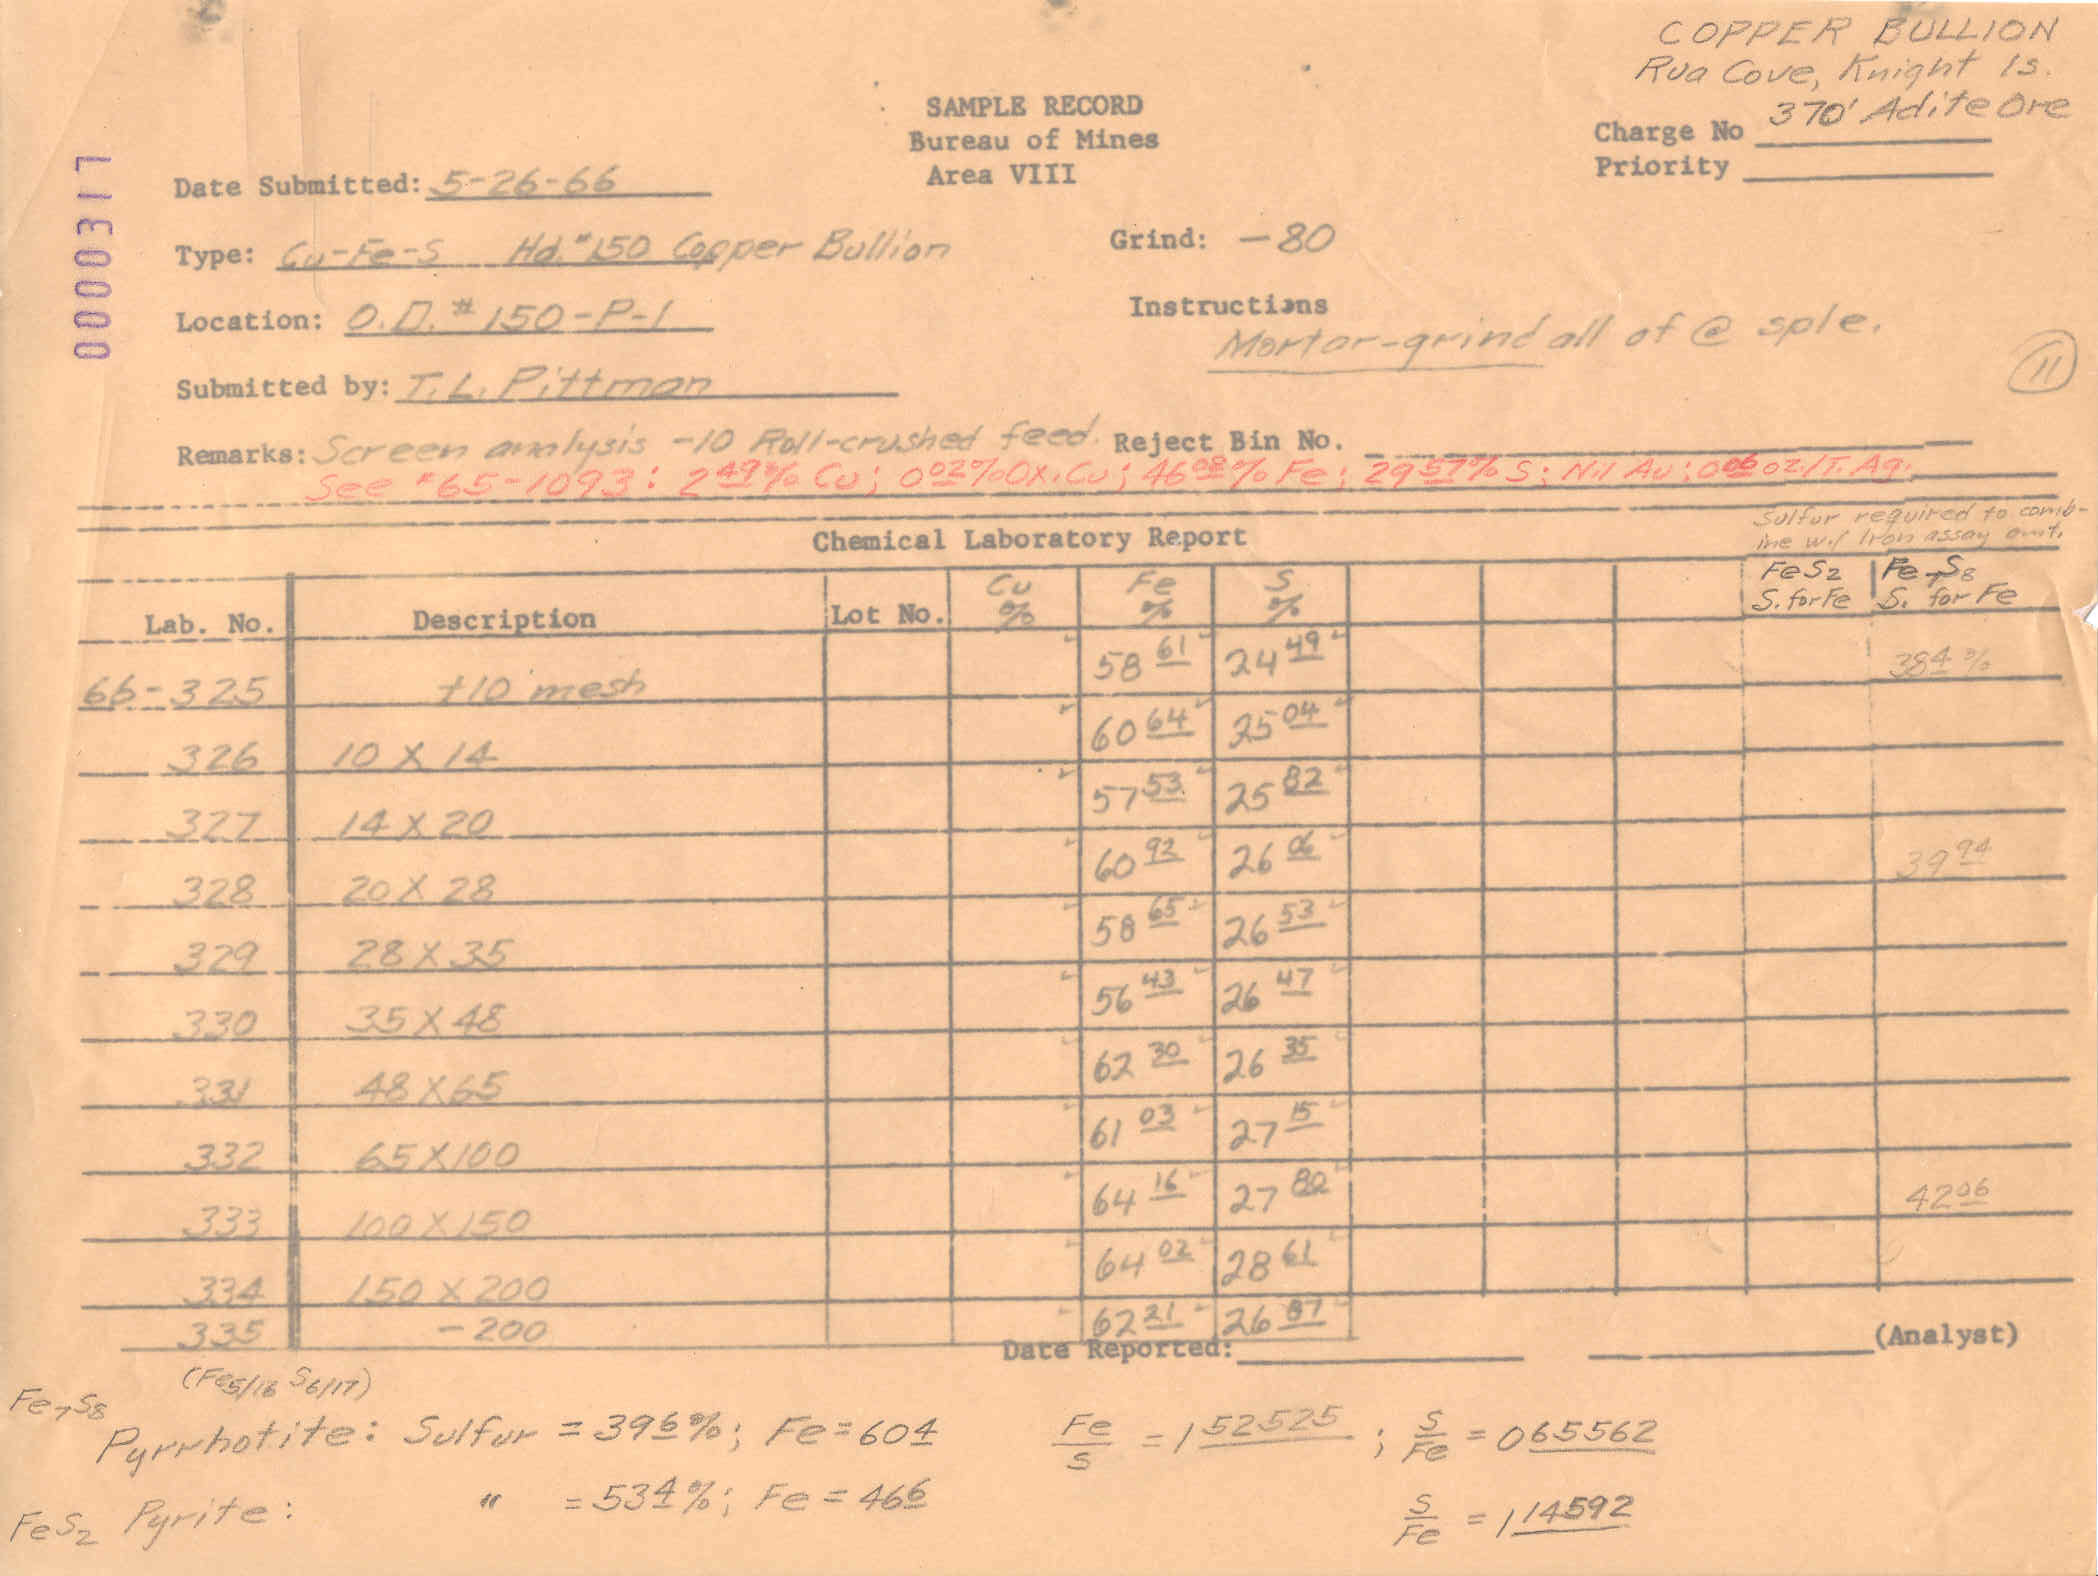 COPPER BULLION
Rua Cove, Knight Is.
370' Adite Ore
SAMPLE RECORD
Bureau of Mines
Area VIII
Charge No
Priority
0000317
Date Submitted: 5-26-66
Type: Cu-Fe-S Hd. #150 Copper Bullion
Grind: -80
Location: O.D. #150-P-1
Instructions
Mortar-grind all of @ sple.
11
Submitted by: T.L. Pittman
Remarks: Screen analysis -10 Roll-crushed feed. Reject Bin No.
See #65-1093: 2 49% Cu; 0 02% Ox. Cu; 46 08% Fe; 29 57% S; Nil Au; 0 06 oz./T. Ag.
Sulfur required to comb-
ine w./ Iron assay amt.
Chemical Laboratory Report
Lab. No. Description Lot No. Cu % Fe % S % FeS2 S. for Fe Fe7S8 S. for Fe
66-325 +10 mesh 58 61 24 49 38 4 %
326 10 X 14 60 64 25 04
327 14 X 20 57 53 25 82
328 20 X 28 60 92 26 06 39 94
329 28 X 35 58 65 26 53
330 35 X 48 56 43 26 47
331 48 X 65 62 30 26 35
332 65 X 100 61 03 27 15
333 100 X 150 64 16 27 80 42 06
334 150 X 200 64 02 28 61
335 -200 62 21 26 87
Date Reported: (Analyst)
(Fe5/16 S6/17)
Fe7S8 Pyrrhotite: Sulfur = 39 6%; Fe = 60 4 Fe/S = 1 52525; S/Fe = 0 65562
FeS2 Pyrite: " = 53 4%; Fe = 46 6 S/Fe = 1 14592